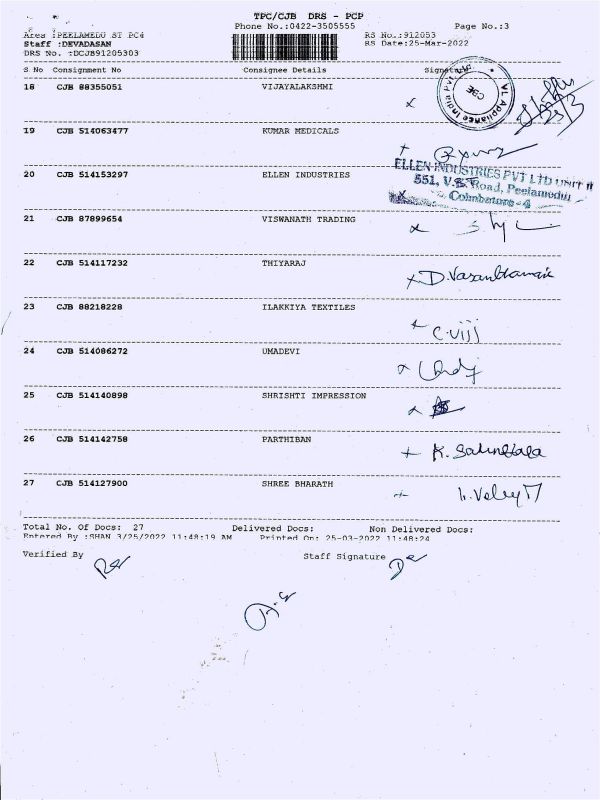 TPC/CJB DRS - PCP
Phone No.:0422-3505555 Page No.:3
Area :PEELAMEDU ST PC4 RS No.:912053
Staff :DEVADASAN RS Date:25-Mar-2022
DRS No. :DCJB91205303
S No Consignment No Consignee Details Signature
18 CJB 88355051 VIJAYALAKSHMI
VL Appliance India Pvt Ltd
CBE
19 CJB 514063477 KUMAR MEDICALS
20 CJB 514153297 ELLEN INDUSTRIES
ELLEN INDUSTRIES PVT LTD UNIT II
551, V.K. Road, Peelamedu
Coimbatore - 4
21 CJB 87899654 VISWANATH TRADING
22 CJB 514117232 THIYARAJ
D. Vasanthamani
23 CJB 88218228 ILAKKIYA TEXTILES
C. Viji
24 CJB 514086272 UMADEVI
25 CJB 514140898 SHRISHTI IMPRESSION
26 CJB 514142758 PARTHIBAN
27 CJB 514127900 SHREE BHARATH
Total No. Of Docs: 27 Delivered Docs: Non Delivered Docs:
Entered By :SHAN 3/25/2022 11:48:19 AM Printed On: 25-03-2022 11:48:24
Verified By Staff Signature